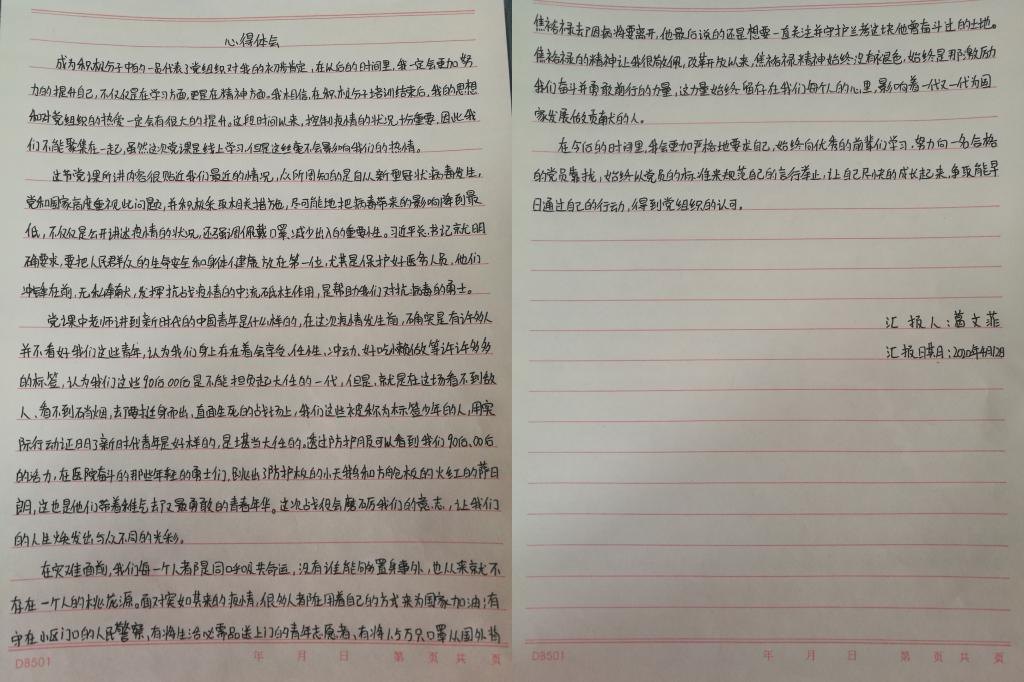 心得体会
成为积极分子中的一员代表了党组织对我的初步肯定，在以后的时间里，我一定会更加努
力的提升自己，不仅仅是在学习方面，更是在精神方面。我相信，在积极分子培训结束后，我的思想
和对党组织的热爱一定会有很大的提升。这段时间以来，控制疫情的状况十分重要，因此我
们不能聚集在一起，虽然这次党课是线上学习，但是这丝毫不会影响我们的热情。
这节党课所讲内容很贴近我们最近的情况，众所周知的是自从新型冠状病毒发生，
党和国家高度重视此问题，并积极采取相关措施，尽可能地把病毒带来的影响降到最
低，不仅仅是公开讲述疫情的状况，还强调佩戴口罩、减少出入的重要性。习近平总书记就明
确要求，要把人民群众的生命安全和身体健康放在第一位，尤其是保护好医务人员，他们
冲锋在前，无私奉献，发挥抗战疫情的中流砥柱作用，是帮助我们对抗病毒的勇士。
党课中老师讲到新时代的中国青年是什么样的，在这次疫情发生前，确实是有许多人
并不看好我们这些青年，认为我们身上存在着会享受、任性、冲动、好吃懒做等许许多多
的标签，认为我们这些90后00后是不能担负起大任的一代，但是，就是在这场看不到敌
人、看不到硝烟，却要挺身而出，直面生死的战场上，我们这些被称为标签少年的人，用实
际行动证明了新时代青年是好样的，是堪当大任的。透过防护服可以看到我们90后、00后
的活力，在医院奋斗的那些年轻的勇士们，跳出了防护板的小天鹅和方舱板的火红的萨日
朗，这也是他们带着稚气却又最勇敢的青春年华。这次战役会磨砺我们的意志，让我们
的人生焕发出与众不同的光彩。
在灾难面前，我们每一个人都是同呼吸共命运，没有谁能够置身事外，也从来就不
存在一个人的桃花源。面对突如其来的疫情，很多人都在用着自己的方式来为国家加油：有
守在小区门口的人民警察，有将生活必需品送上门的青年志愿者，有将1.5万只口罩从国外将
焦裕禄去了因病将要离开，他最后说的还是想要一直关注并守护兰考这块他曾奋斗过的土地。
焦裕禄的精神让我很敬佩，改革开放以来，焦裕禄精神始终没有褪色，始终是那激励
我们奋斗并勇敢前行的力量，这力量始终留存在我们每个人的心里，影响着一代又一代为国
家发展做贡献的人。
在今后的时间里，我会更加严格地要求自己，始终向优秀的前辈们学习，努力向一名合格
的党员靠拢，始终以党员的标准来规范自己的言行举止，让自己尽快的成长起来，争取能早
日通过自己的行动，得到党组织的认可。
汇报人：葛文菲
汇报日期：2020年4月12日
DB501 年 月 日 第 页 共 页
DB501 年 月 日 第 页 共 页